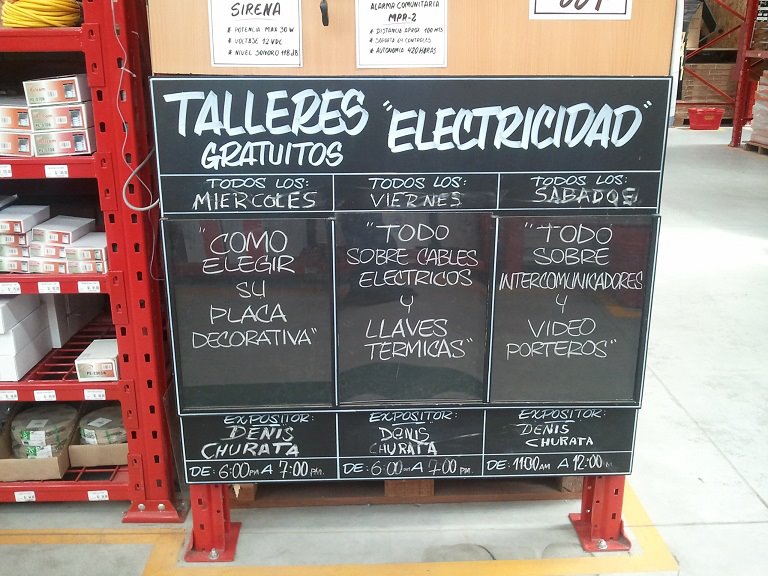 SIRENA
* POTENCIA MAX 30 W
* VOLTAJE 12 VDC
* NIVEL SONORO 118 dB
ALARMA COMUNITARIA
MPR-2
* DISTANCIA APROX 100 MTS
* SOPORTA 64 CONTROLES
* AUTONOMIA 420 HORAS
TALLERES "ELECTRICIDAD"
GRATUITOS
TODOS LOS:
MIERCOLES
TODOS LOS:
VIERNES
TODOS LOS:
SABADOS
"COMO
ELEGIR
SU
PLACA
DECORATIVA"
"TODO
SOBRE CABLES
ELECTRICOS
Y
LLAVES
TERMICAS"
"TODO
SOBRE
INTERCOMUNICADORES
Y
VIDEO
PORTEROS"
EXPOSITOR:
DENIS
CHURATA
DE: 6:00 PM A 7:00 PM.
EXPOSITOR:
DENIS
CHURATA
DE: 6:00 PM A 7:00 PM.
EXPOSITOR:
DENIS
CHURATA
DE: 11:00 AM A 12:00 M.